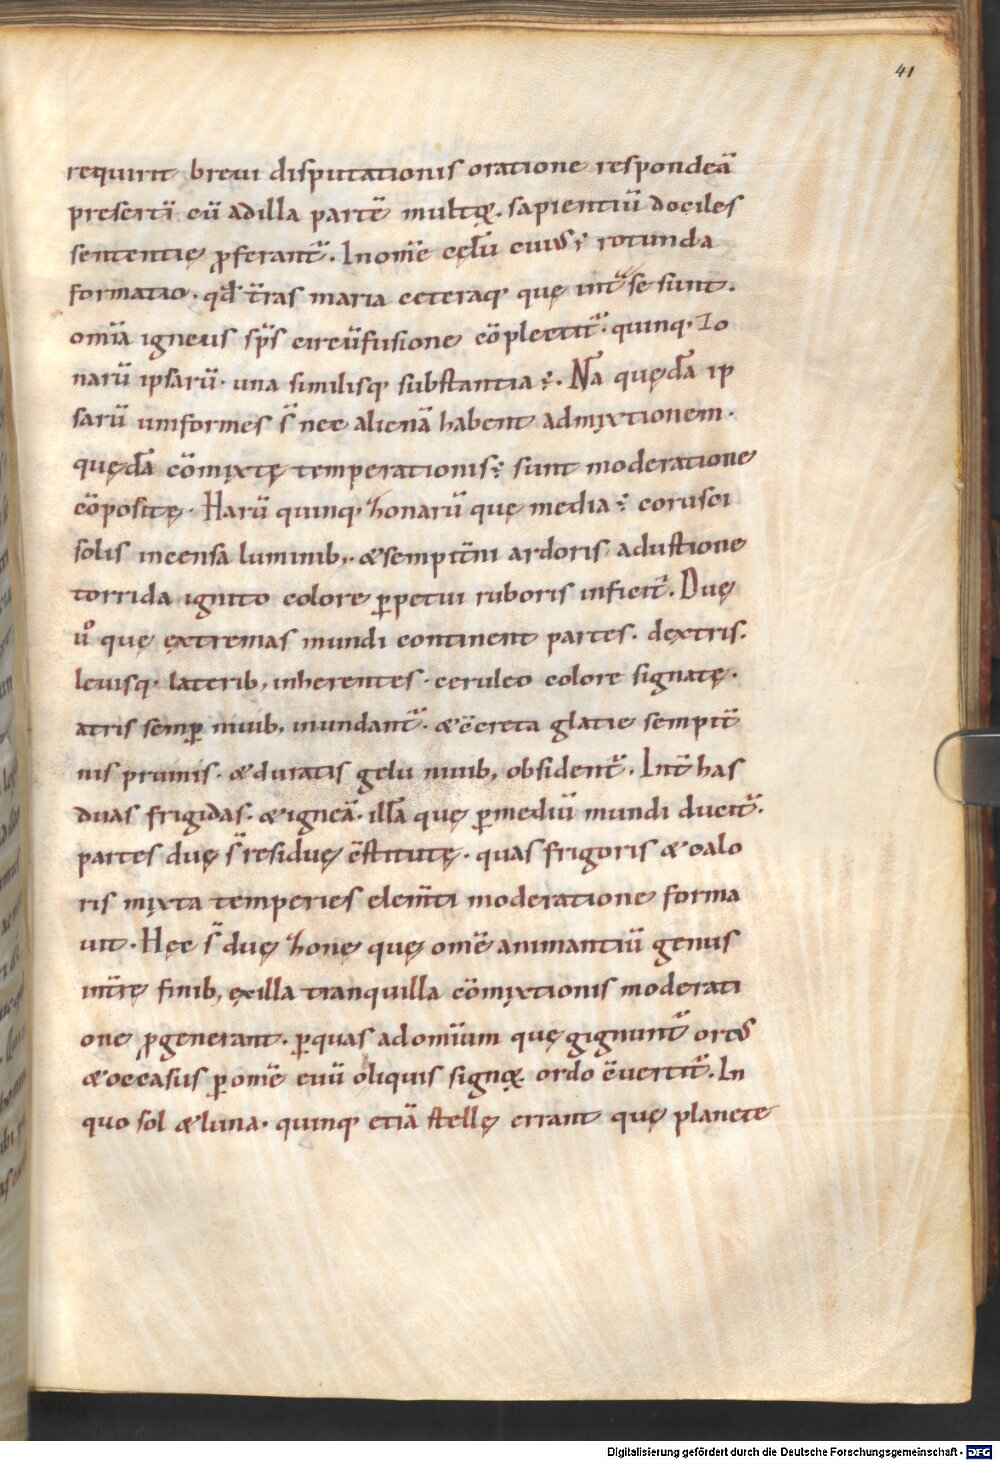 41
requirit breui disputationis oratione respondeā
presertī cū adilla partē multoꝝ. sapientiū dociles
sententię ꝓferant᷑. In om̄e cęlū cui᷒ ÷ rotunda
formatio. qd̄ t̄ras maria ceteraq; que int᷑ se sunt.
om̄ia igneus sp̄s circūfusione cōplectit᷑. quinq; zo
narū ipsarū. una similisq; substantia ÷. Nā quędā ip
sarū uniformes s̄ nec alienā habent admixtionem.
quędā cōmixtę temperationis ÷ sunt moderatione
cōpositę. Harū quinq; honarū quę media ÷ corusci
solis incensa luminib; &sempit̄ni ardoris adustione
torrida ignito colore ꝑpetui ruboris inficit᷑. Duę
u° quę extremas mundi continent partes. dextris.
leuisq; laterib; inherentes. ceruleo colore signatę.
atris semꝑ niuib; inundant᷑. &c̄creta glatie sempit̄
nis pruinis. &duratis gelu niuib; obsident᷑. Int̄ has
duas frigidas. &igneā. illā quę ꝑmediū mundi ducit᷑.
partes duę s̄ residuę c̄stitutę. quas frigoris &calo
ris mixta temperies elem̄ti moderatione forma
uit. Hęc s̄ duę hone quę om̄e animantiū genus
int̄re finib; exilla tranquilla cōmixtionis moderati
one ꝓgenerant. ꝑquas adom̄ium quę gignunt᷑ ort᷒
&occasus ꝑ om̄e euū obliquis signoꝝ. ordo c̄uertit᷑. In
quo sol &luna. quinq; etiā stellę errant quę planete
Digitalisierung gefördert durch die Deutsche Forschungsgemeinschaft - DFG